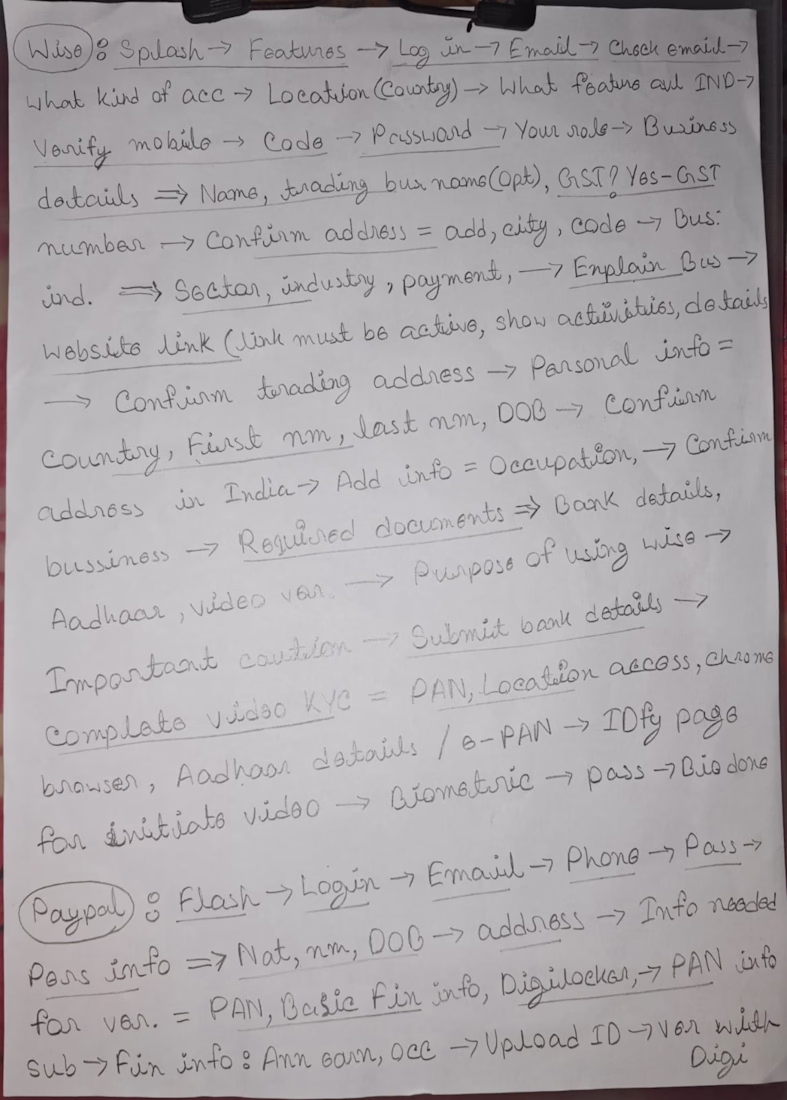 Wise: Splash → Features → Log in → Email → Check email →
What kind of acc → Location (Country) → What feature avl IND →
Verify mobile → Code → Password → Your role → Business
details ⇒ Name, trading bus name(Opt), GST? Yes-GST
number → Confirm address = add, city, code → Bus:
ind. ⇒ Sector, industry, payment, → Explain Bus →
website link (link must be active, show activities, details
→ Confirm trading address → Personal info =
Country, First nm, last nm, DOB → Confirm
address in India → Add info = Occupation, → Confirm
bussiness → Required documents ⇒ Bank details,
Aadhaar, video ver. → Purpose of using wise →
Important caution → Submit bank details →
Complete video KYC = PAN, Location access, chrome
browser, Aadhaar details / e-PAN → IDfy page
for initiate video → Biometric → pass → Bio done
Paypal: Flash → Login → Email → Phone → Pass →
Pers info ⇒ Nat, nm, DOB → address → Info needed
for ver. = PAN, Basic Fin info, Digilocker, → PAN info
sub → Fin info: Ann earn, occ → Upload ID → ver with
Digi